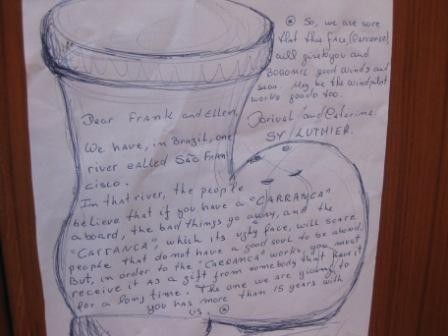 Dear FRANK and Ellen,
We have, in Brazil, one
river called SÃO FRAN
CISCO.
In that river, the people
believe that if you have a "CARRANCA"
aboard, the bad things go away, and the
"CARRANCA", which its ugly face, will scare
people that do not have a good soul to be aboard.
But, in order to the "CARRANCA" works, you must
receive it as a gift from somebody that have it
for a long time. The one we are giving to
you has more than 15 years with
us.
So, we are sure
that this face, (Carranca),
will give to you and
good winds and
seas. May be the windpilot
works good too.
Dorival and Catarina.
SY LUTHIER.